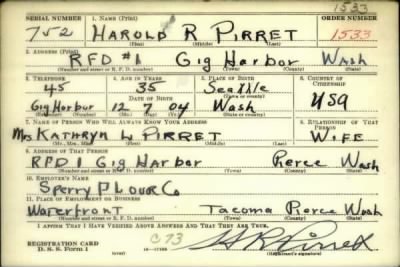 1533
SERIAL NUMBER 1. NAME (Print) ORDER NUMBER
752 HAROLD R PIRRET 1533
(First) (Middle) (Last)
2. ADDRESS (Print)
RFD #1 Gig Harbor Wash
(Number and street or R. F. D. number) (Town) (County) (State)
3. TELEPHONE 4. AGE IN YEARS 5. PLACE OF BIRTH 6. COUNTRY OF CITIZENSHIP
45 35 Seattle
Gig Harbor DATE OF BIRTH
12 7 04 Wash USA
(Exchange) (Number) (Mo.) (Day) (Yr.) (State or country)
7. NAME OF PERSON WHO WILL ALWAYS KNOW YOUR ADDRESS 8. RELATIONSHIP OF THAT PERSON
Mrs KATHRYN W PIRRET WIFE
(Mr., Mrs., Miss) (First) (Middle) (Last)
9. ADDRESS OF THAT PERSON
RFD 1 Gig Harbor Pierce Wash
(Number and street or R. F. D. number) (Town) (County) (State)
10. EMPLOYER'S NAME
Sperry FLOUR Co
11. PLACE OF EMPLOYMENT OR BUSINESS
Waterfront Tacoma Pierce Wash
(Number and street or R. F. D. number) (Town) (County) (State)
I AFFIRM THAT I HAVE VERIFIED ABOVE ANSWERS AND THAT THEY ARE TRUE.
REGISTRATION CARD
D. S. S. Form 1 C73 H R Pirret
(Registrant's signature)